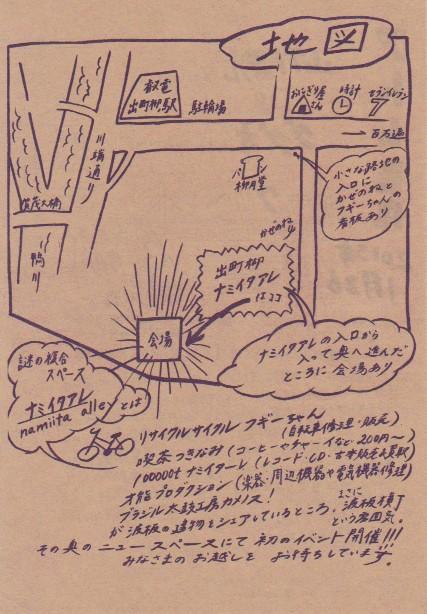 地図
叡電
出町柳駅
駐輪場
おにぎり屋
さん
時計
セブンイレブン
→ 百万遍
川端通り
賀茂大橋
鴨川
パン
柳月堂
小さな路地の
入口に
かぜのねと
フギーちゃんの
看板あり
かぜのね
出町柳
ナミイタアレ
はココ
会場
ナミイタアレの入口から
入って奥へ進んだ
ところに会場あり
謎の複合
スペース
ナミイタアレ
namiita alley とは
リサイクルサイクル フギーちゃん
(自転車修理・販売)
喫茶つきなみ (コーヒーやチャーイなど・200円〜)
100000tナミイターレ (レコード・CD・古本販売&買取)
才能プロダクション (楽器・周辺機器や電気機器修理)
ブラジル太鼓工房カメノス!
が波板の建物をシェアしているところ。まさに波板横丁
という雰囲気。
その奥のニュースペースにて初のイベント開催!!!
みなさまのお越しをお待ちしています。